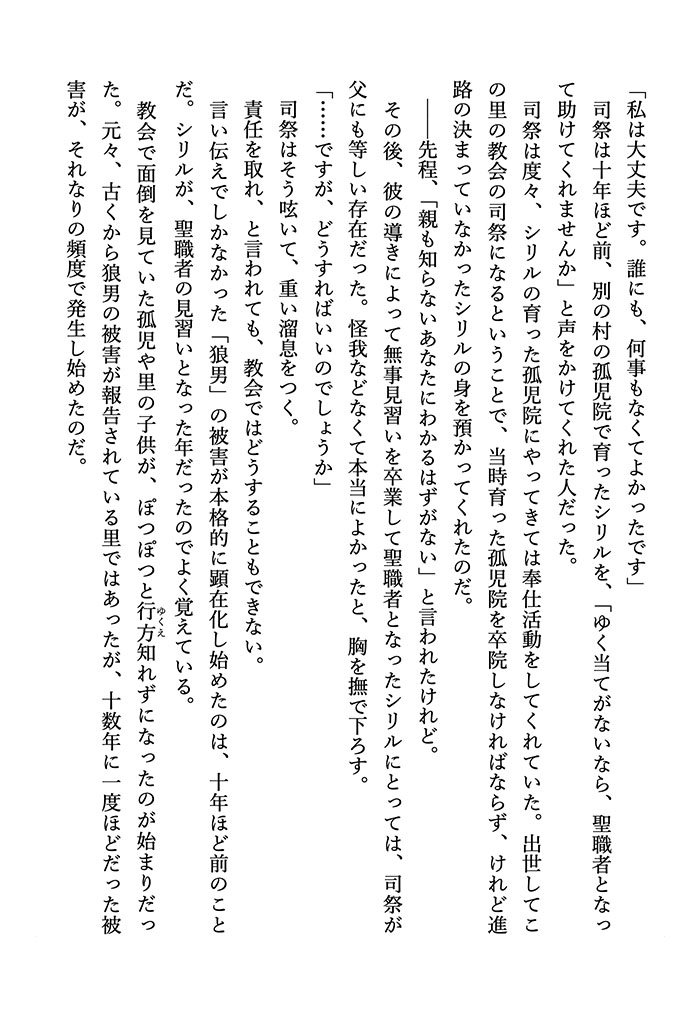 「私は大丈夫です。誰にも、何事もなくてよかったです」
　司祭は十年ほど前、別の村の孤児院で育ったシリルを、「ゆく当てがないなら、聖職者となっ
て助けてくれませんか」と声をかけてくれた人だった。
　司祭は度々、シリルの育った孤児院にやってきては奉仕活動をしてくれていた。出世してこ
の里の教会の司祭になるということで、当時育った孤児院を卒院しなければならず、けれど進
路の決まっていなかったシリルの身を預かってくれたのだ。
　――先程、「親も知らないあなたにわかるはずがない」と言われたけれど。
　その後、彼の導きによって無事見習いを卒業して聖職者となったシリルにとっては、司祭が
父にも等しい存在だった。怪我などなくて本当によかったと、胸を撫で下ろす。
「……ですが、どうすればいいのでしょうか」
　司祭はそう呟いて、重い溜息をつく。
　責任を取れ、と言われても、教会ではどうすることもできない。
　言い伝えでしかなかった「狼男」の被害が本格的に顕在化し始めたのは、十年ほど前のこと
だ。シリルが、聖職者の見習いとなった年だったのでよく覚えている。
　教会で面倒を見ていた孤児や里の子供が、ぽつぽつと行方知れずになったのが始まりだっ
ゆくえ
た。元々、古くから狼男の被害が報告されている里ではあったが、十数年に一度ほどだった被
害が、それなりの頻度で発生し始めたのだ。